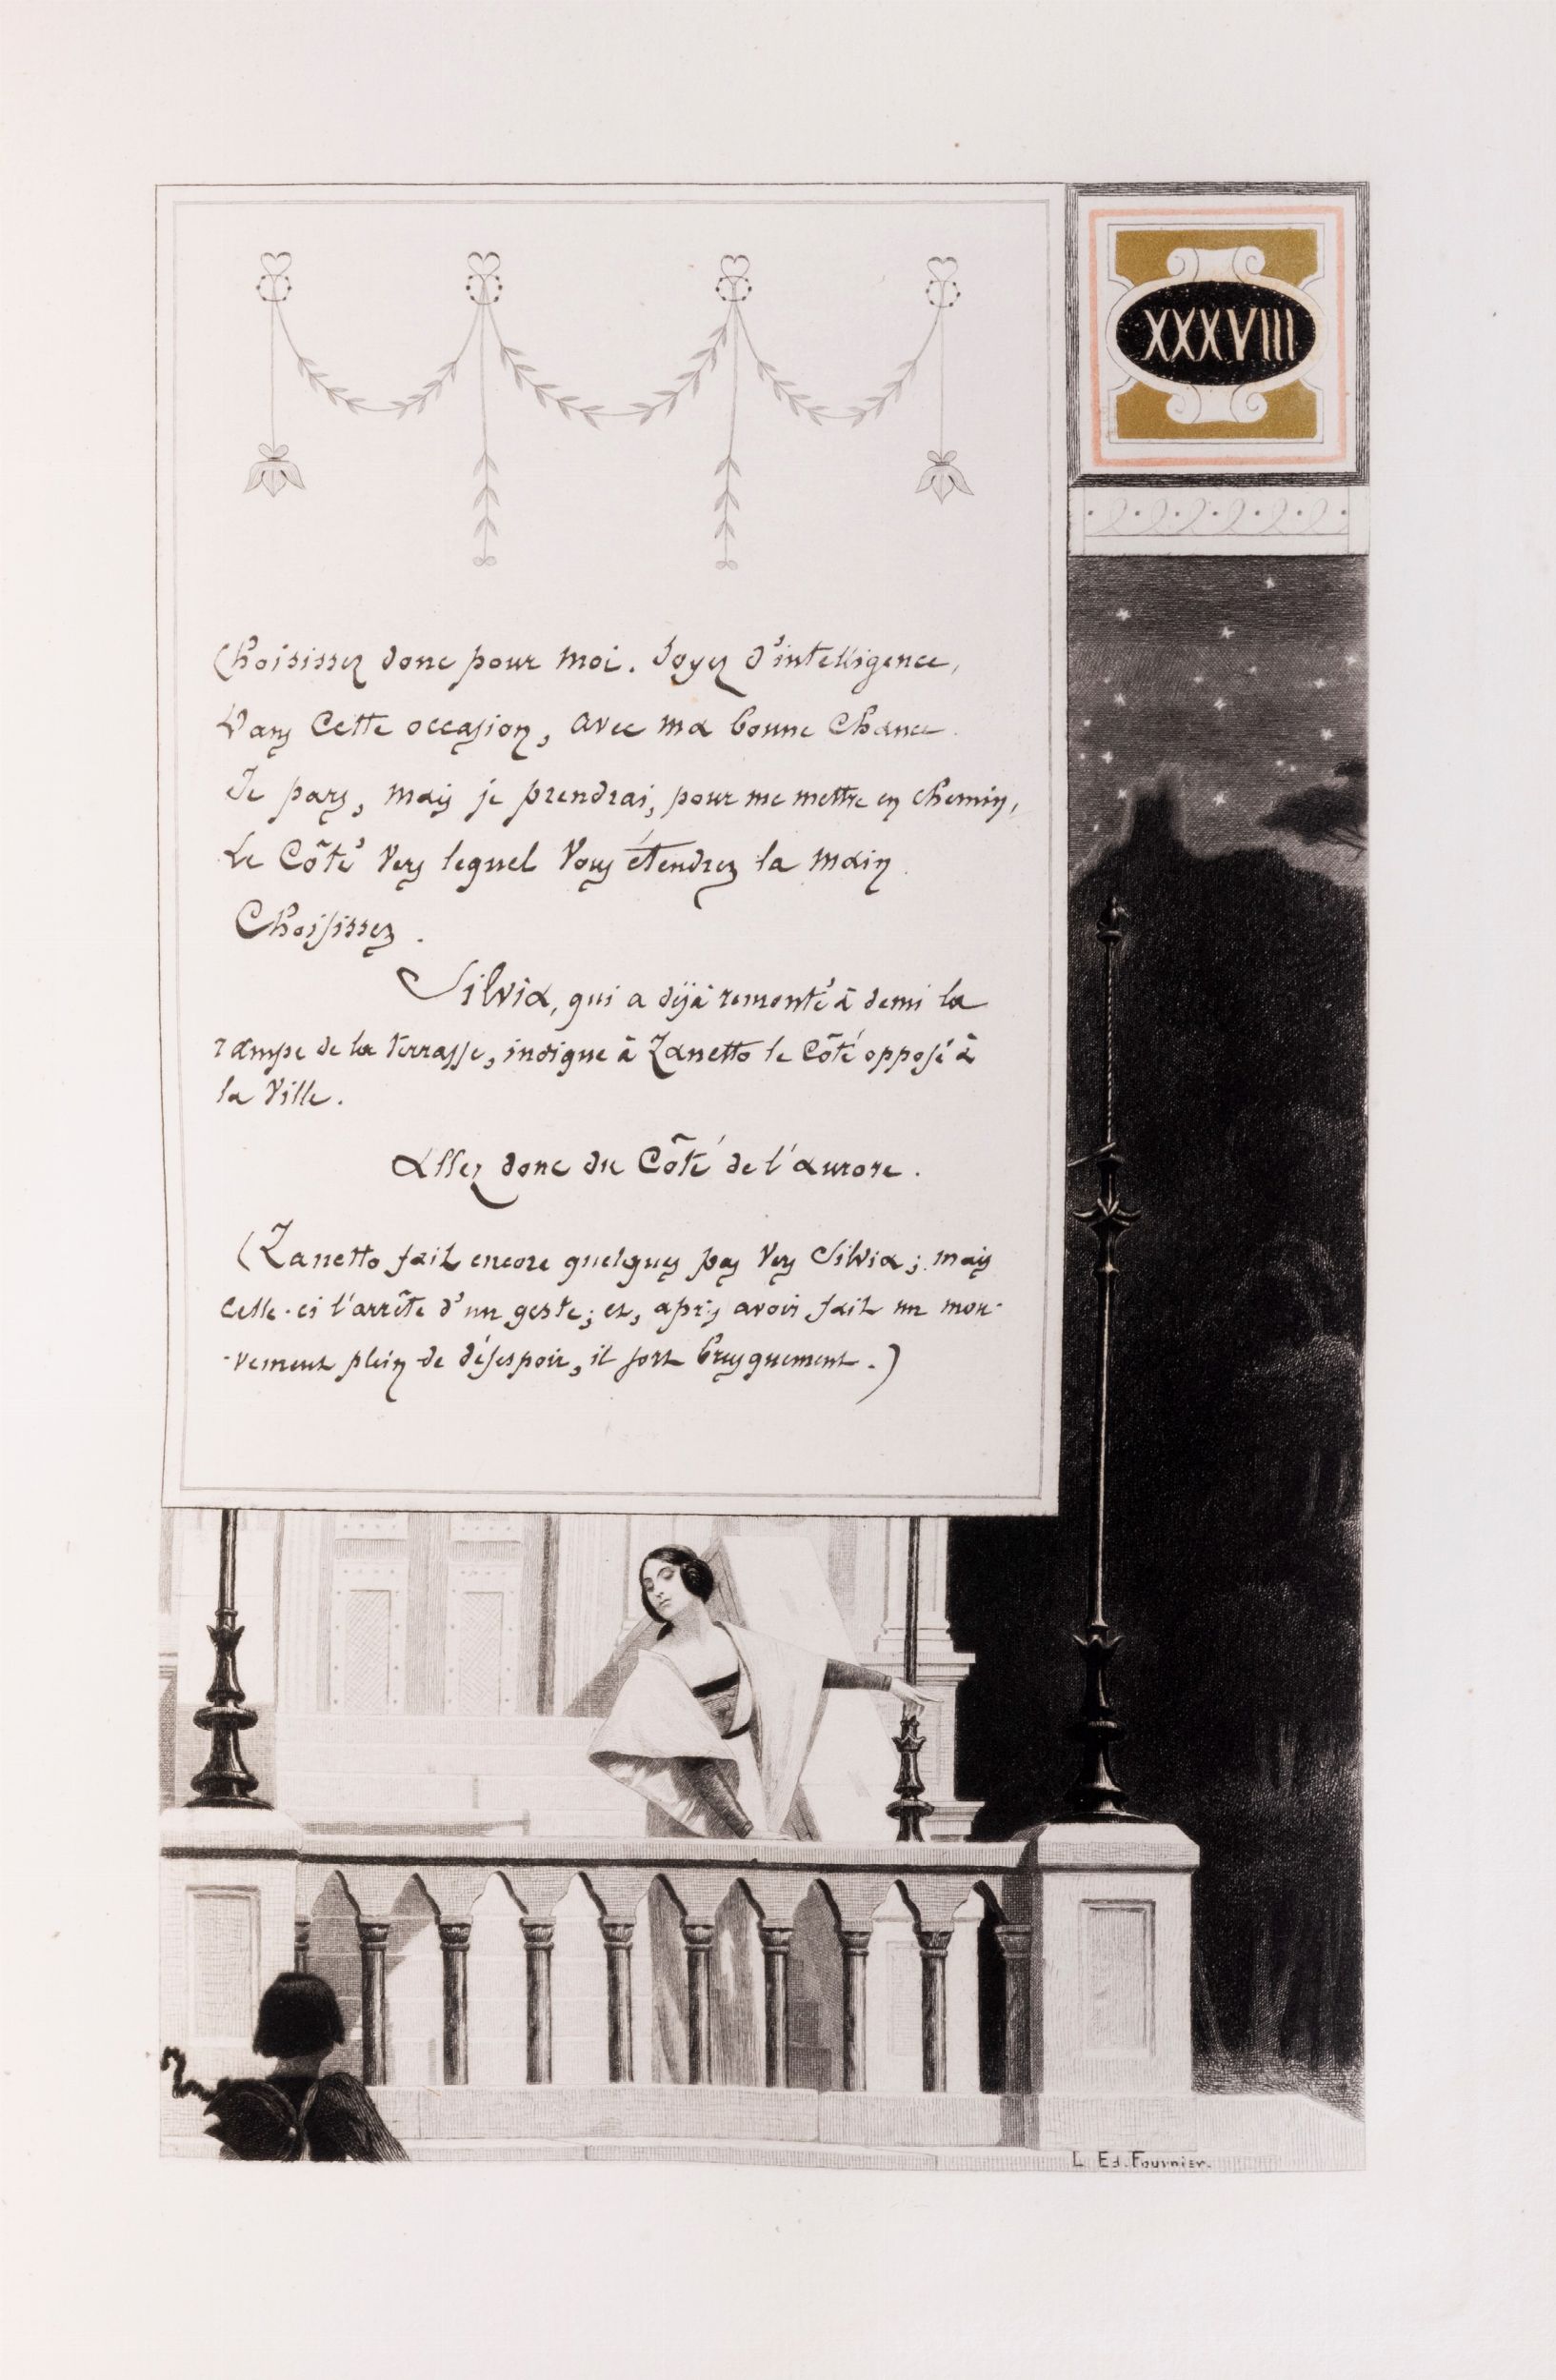 XXXVIII
Choisissez donc pour moi. Soyez d'intelligence,
Dans cette occasion, avec ma bonne chance.
Je pars, mais je prendrai, pour me mettre en chemin,
Le côté vers lequel vous étendrez la main.
Choisissez.
Silvia, qui a déjà remonté à demi la
rampe de la terrasse, indique à Zanetto le côté opposé à
la ville.
Allez donc du côté de l'aurore.
(Zanetto fait encore quelques pas vers Silvia; mais
celle-ci l'arrête d'un geste; et, après avoir fait un mou-
-vement plein de désespoir, il sort brusquement.)
L. Ed. Fournier.